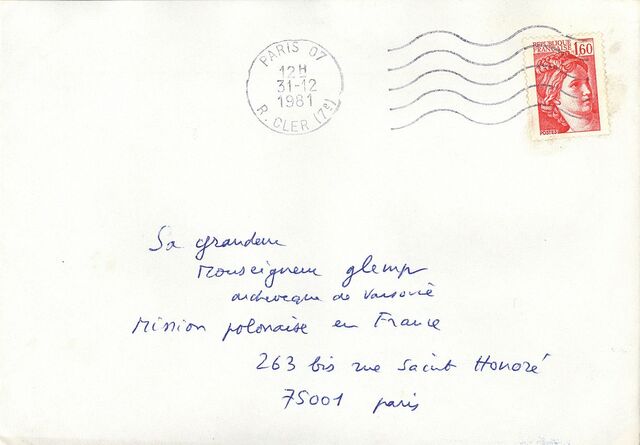 PARIS 07
12H
31-12
1981
R. CLER (7e)
REPUBLIQUE
FRANÇAISE 1,60
POSTES
Sa grandeur
Monseigneur glemp
archevêque de Varsovie
Mission polonaise en France
263 bis rue Saint Honoré
75001 paris